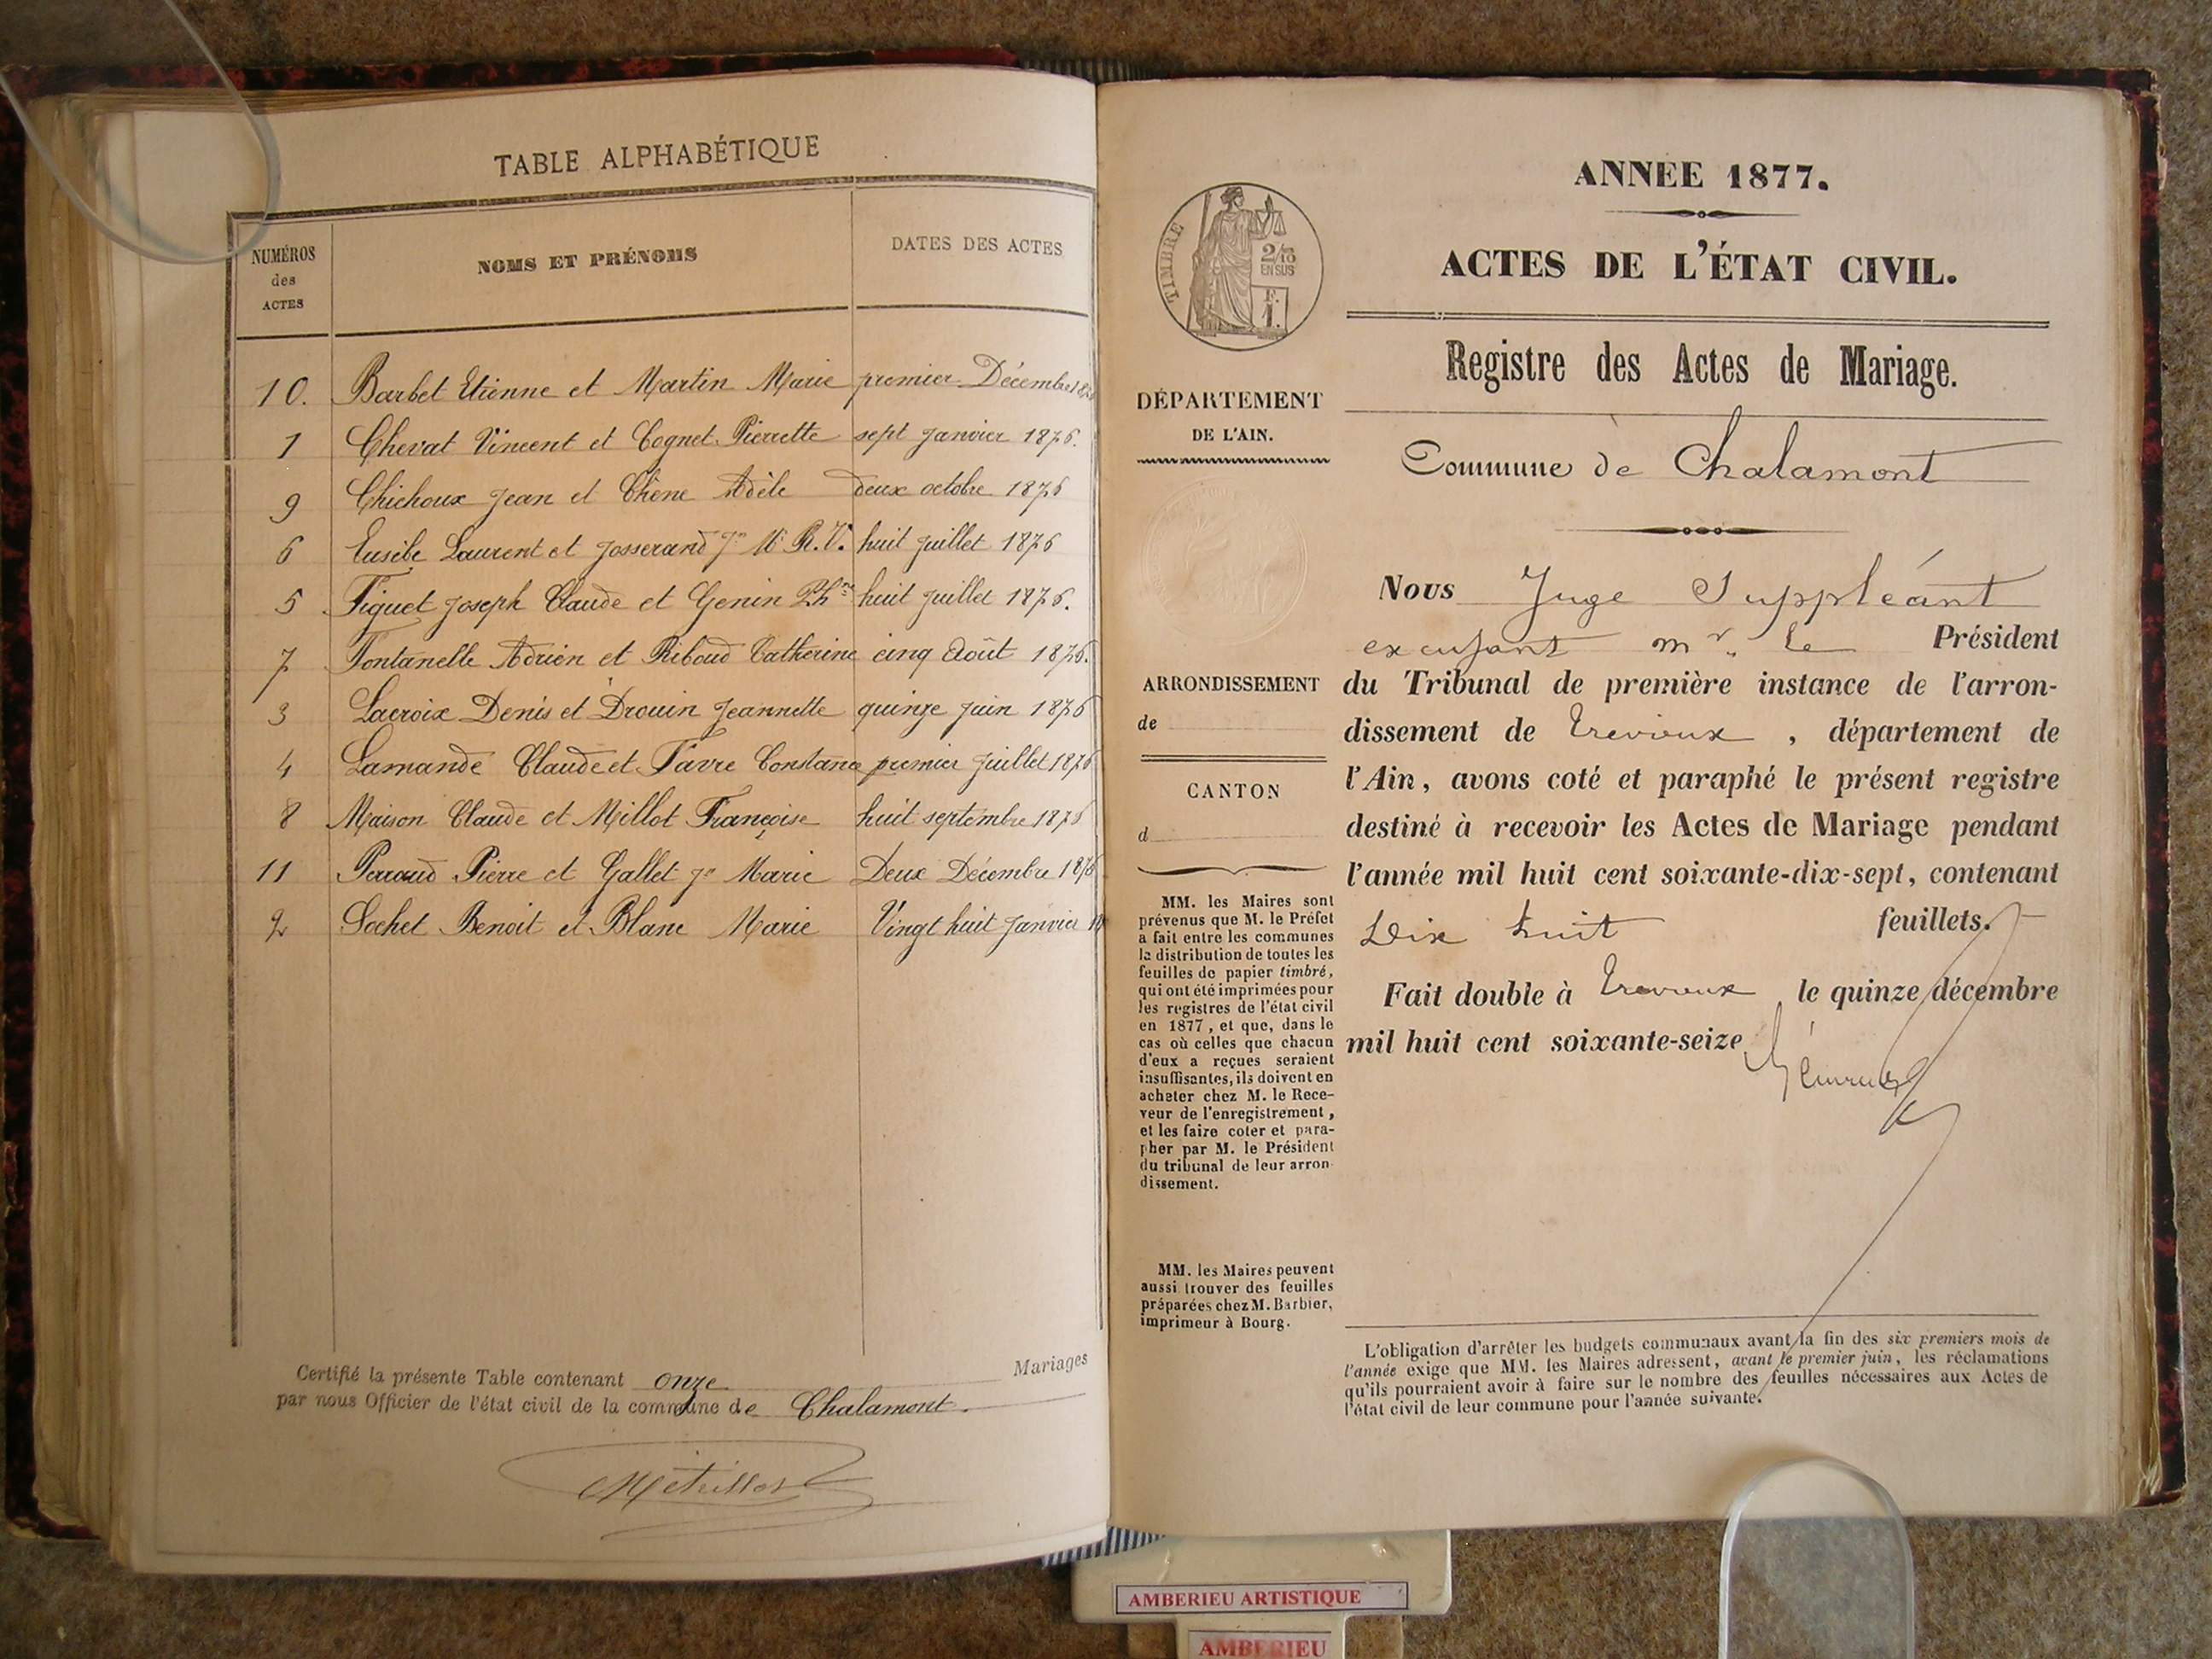 TABLE ALPHABÉTIQUE
NUMÉROS
des
ACTES
NOMS ET PRÉNOMS
DATES DES ACTES
10. Barbet Etienne et Martin Marie premier Décembre
1 Chevat Vincent et Cognet Pierrette sept janvier 1876.
9 Chichoux Jean et Chêne Adèle deux octobre 1876
6 Eusèbe Laurent et Josserand Jne M. R. V. huit juillet 1876
5 Figuet Joseph Claude et Genin huit juillet 1876.
7 Fontanelle Adrien et Riboud Catherine cinq Août 1876.
3 Lacroix Denis et Drouin Jeannette quinze juin 1876
4 Lamande Claude et Favre Constance premier juillet 1876
8 Maison Claude et Millot Françoise huit septembre 1876
11 Perraud Pierre et Gallet Jne Marie Deux Décembre 1876
2 Sochet Benoit et Blanc Marie Vingt huit janvier
Certifié la présente Table contenant onze Mariages
par nous Officier de l'état civil de la commune de Chalamont.
TIMBRE
2/10
EN SUS
F.
1.
DÉPARTEMENT
DE L'AIN.
ARRONDISSEMENT
de
CANTON
d
MM. les Maires sont
prévenus que M. le Préfet
a fait entre les communes
la distribution de toutes les
feuilles de papier timbré,
qui ont été imprimées pour
les registres de l'état civil
en 1877, et que, dans le
cas où celles que chacun
d'eux a reçues seraient
insuffisantes, ils doivent en
acheter chez M. le Rece-
veur de l'enregistrement,
et les faire coter et para-
pher par M. le Président
du tribunal de leur arron-
dissement.
MM. les Maires peuvent
aussi trouver des feuilles
préparées chez M. Barbier,
imprimeur à Bourg.
ANNÉE 1877.
ACTES DE L'ÉTAT CIVIL.
Registre des Actes de Mariage.
Commune de Chalamont
Nous Juge Suppléant
excusant mr. le Président
du Tribunal de première instance de l'arron-
dissement de Trevoux, département de
l'Ain, avons coté et paraphé le présent registre
destiné à recevoir les Actes de Mariage pendant
l'année mil huit cent soixante-dix-sept, contenant
Dix huit feuillets.
Fait double à Trevoux le quinze décembre
mil huit cent soixante-seize
L'obligation d'arrêter les budgets communaux avant la fin des six premiers mois de
l'année exige que MM. les Maires adressent, avant le premier juin, les réclamations
qu'ils pourraient avoir à faire sur le nombre des feuilles nécessaires aux Actes de
l'état civil de leur commune pour l'année suivante.
AMBERIEU ARTISTIQUE
AMBERIEU